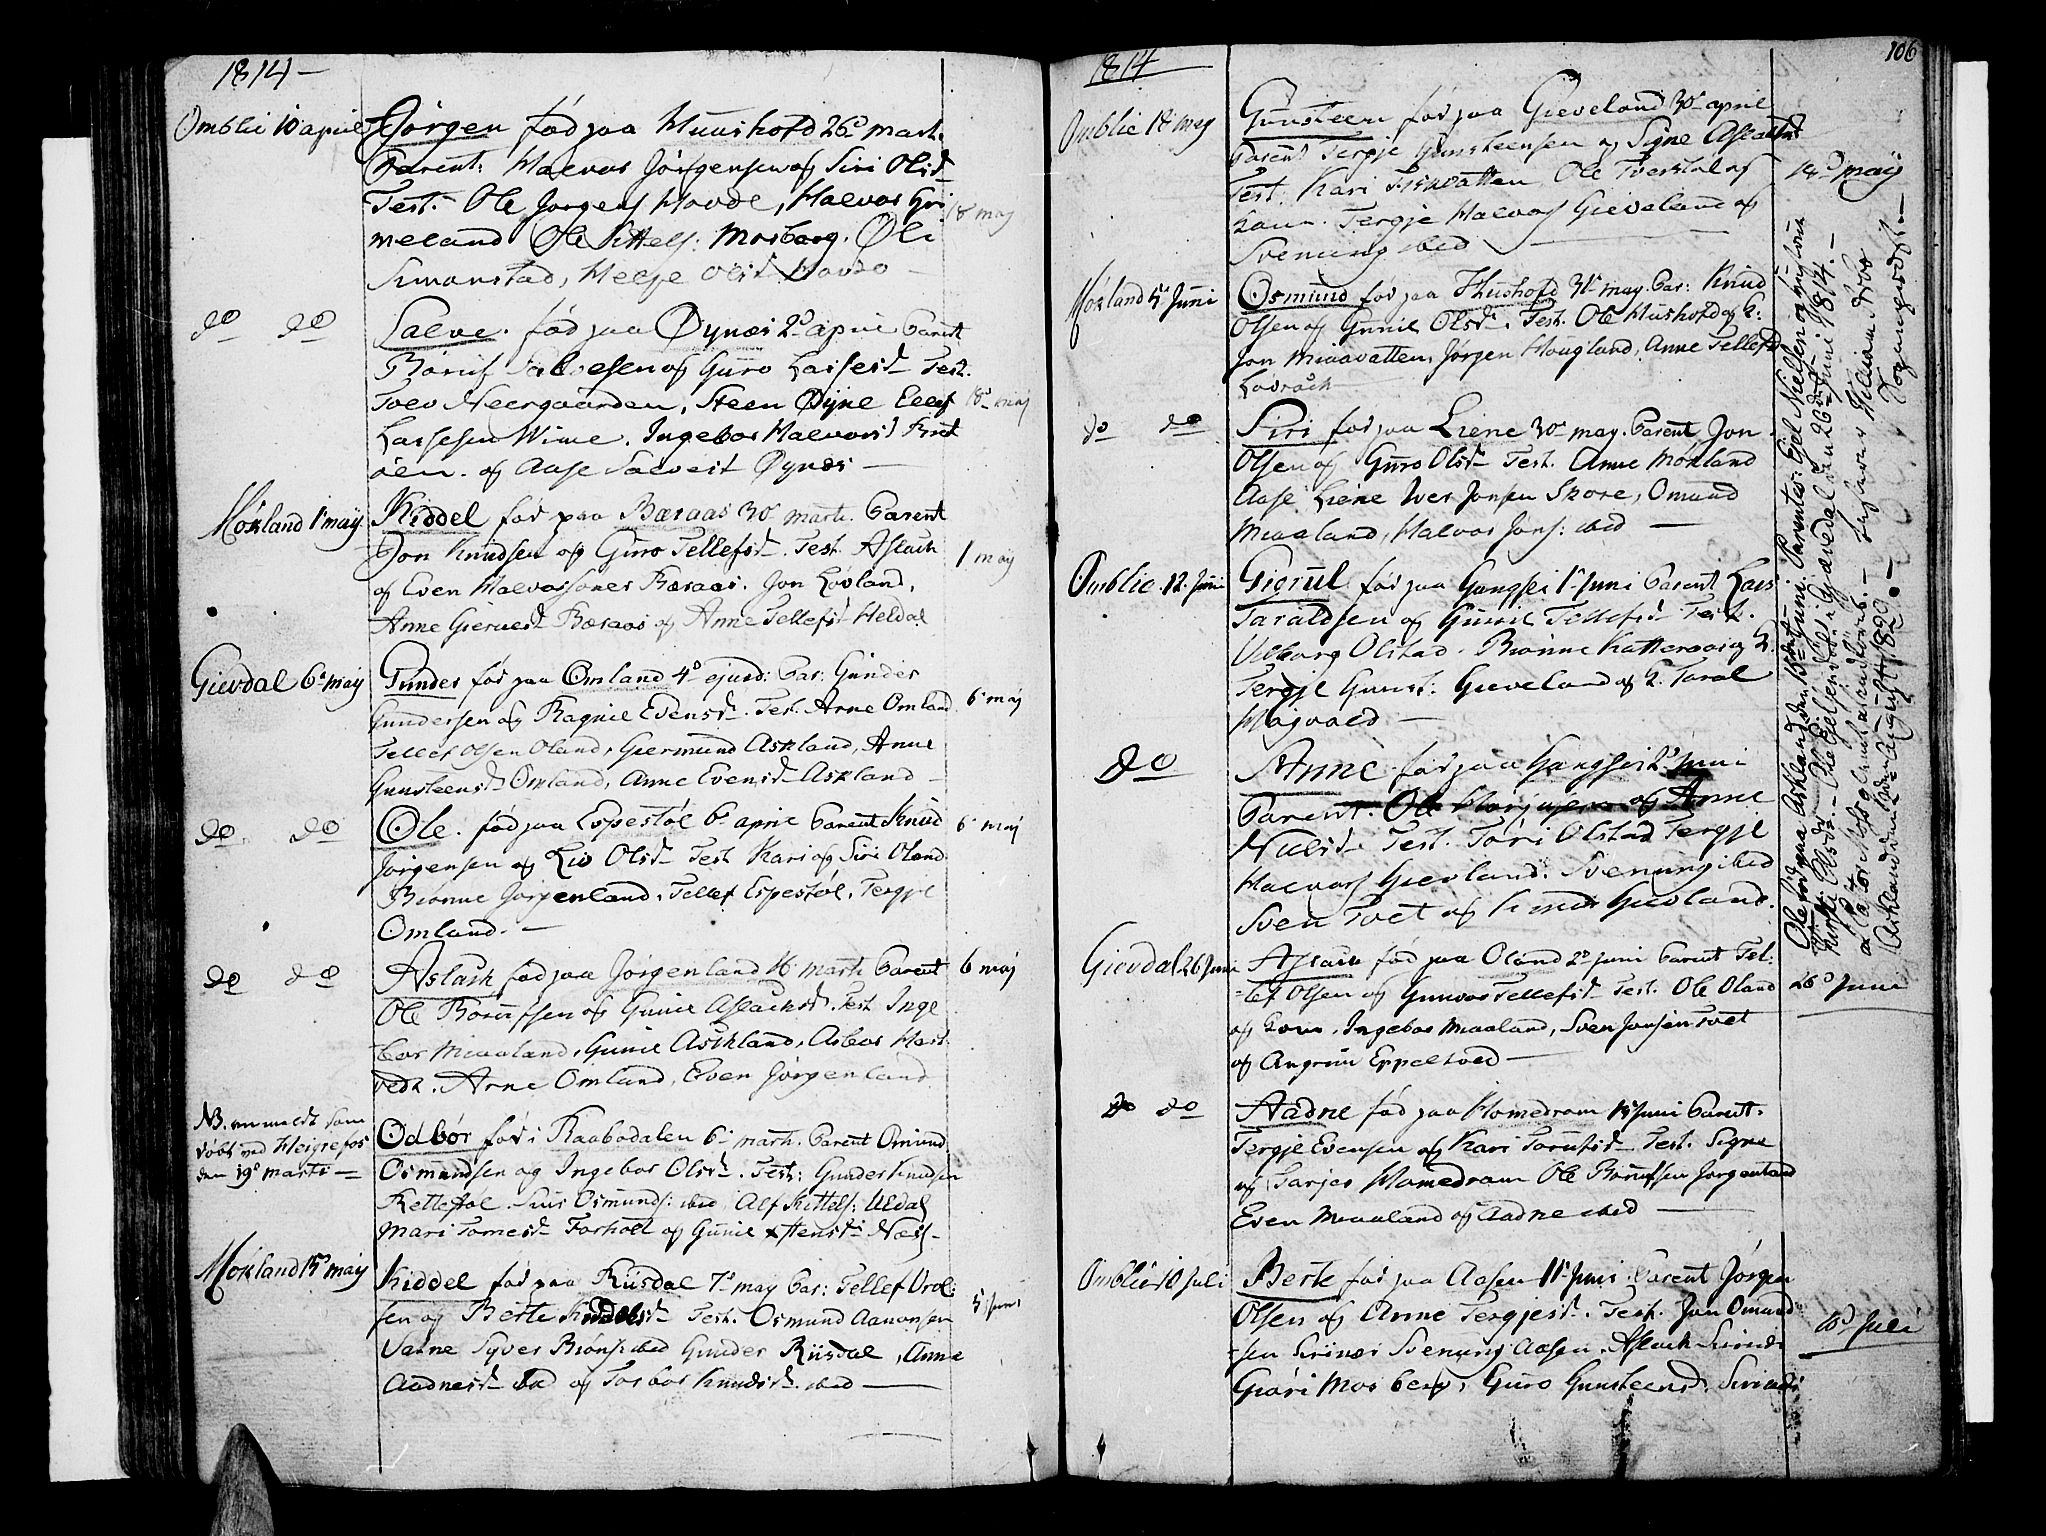 1814
Omblie 10 april Jørgen fød paa Huushofd 26de mart.
Parent: Halvor Jørgensen og Siri Olsd
Test. Ole Jørgens Hovde, Halvor Gri
meland Ole Kittels: Mosberg. Øli
Simonstad, Helje Olsd Hovde
18 maj
do do Salve. fød paa Øynæs 2d april Parent
Salvesen og Guro Larsesd Test.
Tolv Neergaarden, Steen Øyne Ellef
Larsesen Wime. Ingebor Halvorsd
øen. og Aase Salvesd Øynæs
18 maj
Mörland 1 maÿ Kiddel fød paa Bæraas 30 mart. Parent
Jon Knudsen og Guro Tellefsd. Test. Aslach
og Even Halvorsøner Bæraas. Jon Løvland,
Anne Gierulsd Bæraas og Anne Tellefsd Heldal
1 maj
Gievdal 6 maÿ Gunder fød paa Omland 4d ejusd: Par: Gunder
Gundersen og Ragnil Evensd. Test. Arne Omland
Tellef Olsen Oland, Giermund Askland, Anne
Gunsteensd Omland, Anne Evensd Askland
6 maj
do do Ole. fød paa Espestøl 6 april Parent Knud
Jørgensen og Liv Olsd Test Kari og Siri Oland
Biönne Jørgenland. Tellef Espestøl. Tergje
Omland.
6 maj
do do Aslach fød paa Jørgenland 16 marti Parent
Ole Borufsen og Gunil Aslachsd. Test Inge
bor Miaaland, Gunil Askland, Asbor Hart
vedt. Arne Omland, Even Jørgenland
6 maj
NB. anmeldt som
døbt ved Heigrefos
den 19 marti
Odbør fød i Raabodalen 6 marti. Parent Omund
Osmundsen og Ingebor Olsd. Test: Gunder Knudsen
Osmunds: ibid, Alf Kittels: Uldal
Mari Tomesd Forholt og Gunil Næs
Mörland 15 maÿ Kiddel fød paa Riisdal 7 may Par: Tellef Urol:
sen og Berte Kiddelsd Test. Osmund Aanonsen
Valne Syver Biøns: ibid Gunder Riisdal, Anne
Aadnesd ibid og Torbor Knudsd. ibid
5 Juni
1814
106
Omblie 18 may Gunsteen fød paa Gieveland 30 april
Parent Tergje Gunsteensen og Signe Aslachsd
Test: Kari Fiskvatten, Ole Tveitdal og
Kone. Tergje Halvors Gieveland og
Svenung ibid
18 maÿ
Mörland 5 Juni Osmund fød paa Huushofd 31 may. Par: Knud
Olsen og Gunil Olsd. Test. Ole Huushofd og K:
Jon Miaavatten, Jørgen Hougland, Anne Tellefsd
Lavrach
do do Siri fød paa Liene 30 may. Parent, Jon
Olsen og Guro Olsd Test. Anne Mörland
Aase Liene Iver Jonsen Skore, Omund
Miaaland, Halvor Jons: ibid
Omblie. 12. Juni Gierul fød paa Gangsei 1 Juni Parent Lars
Taraldsen og Gunil Tellefsd Test.
Vilborg Olstad. Biönne Katteraas og K.
Tergje Gunst: Gieveland og K. Taral
Mojvaed
do Anne fød paa Gangsei 2d Juni
Parent. Ole og Anne
Nielsd. Test. Tori Olstad Tergje
Halvors Gievland. Svenung ibid
Sven Tvet og Gievland.
Gievdal 26 Juni Aslach fød paa Oland 2d juni Parent Tel:
lef Olsen og Gunvor Tellefsd Test. Ole Oland
og kone, Ingebor Miaaland, Sven Jonsen Tvet
og Angrim Eppeltved
26d Juni
do do Aadne fød paa Homedram 15 Juni Parent.
Tergje Evensen og Kari Torufsd Test. Signe
og Tarjer Homedram Ole Borufsen Jørgenland
Even Miaaland og Aadne ibid
Omblie 10 Juli Berte fød paa Aasen 11 Juni. Parent Jørgen
Olsen og Anne Tergjesd. Test. Jon Omund
sen Svenung Aasen. Aslach
Giøri Mosberg, Guro Gunsteensd.
10d Juli
Ole fød paa Askland den 15de Juni. Parentes: Egel Nielsen og hustrue
Kirsti Olsdr. Ole Egelsen døbt i Gjævedal den 26de Juni 1814.
Askland den August 1829.
Sogneprest